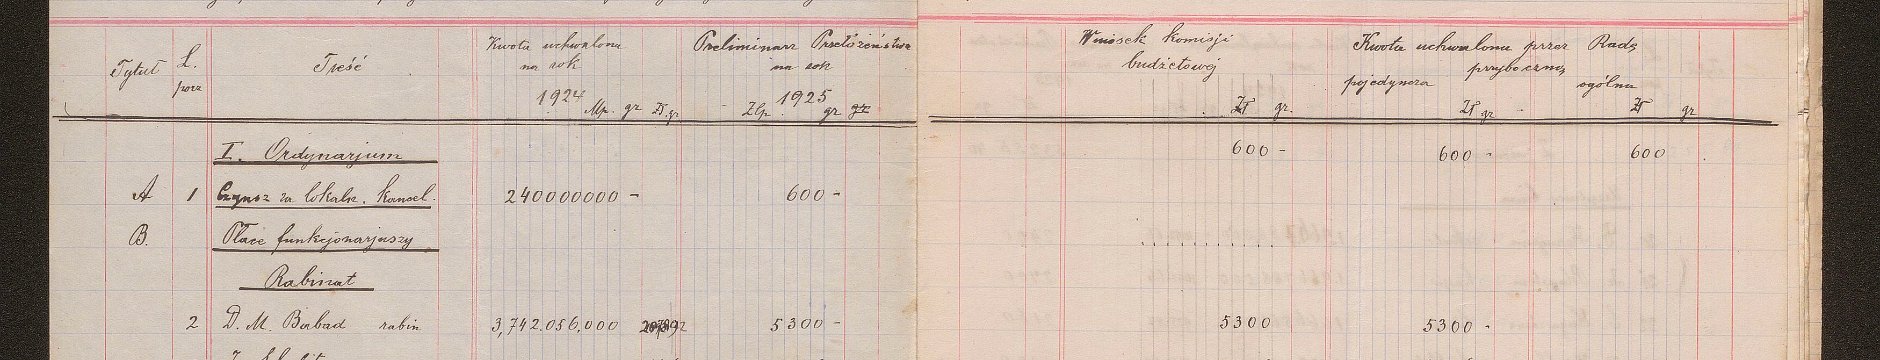 Tytuł L. porz Treść Kwota uchwalona na rok 1924 Mp. gr Zł. gr Preliminarz Przełożeństwa na rok 1925 Złp. gr gr Wniosek komisji budżetowej Zł gr. Kwota uchwalona przez Radę przyboczną pojedyncza Zł gr ogólna Zł gr
I. Ordynarjum 600 - 600 - 600
A 1 Czynsz za lokaln. kancel. 240000000 - 600 -
B. Płace funkcjonarjuszy
Rabinat
2 D. M. Babad rabin 3,742.056.000 5300 - 5300 5300 -